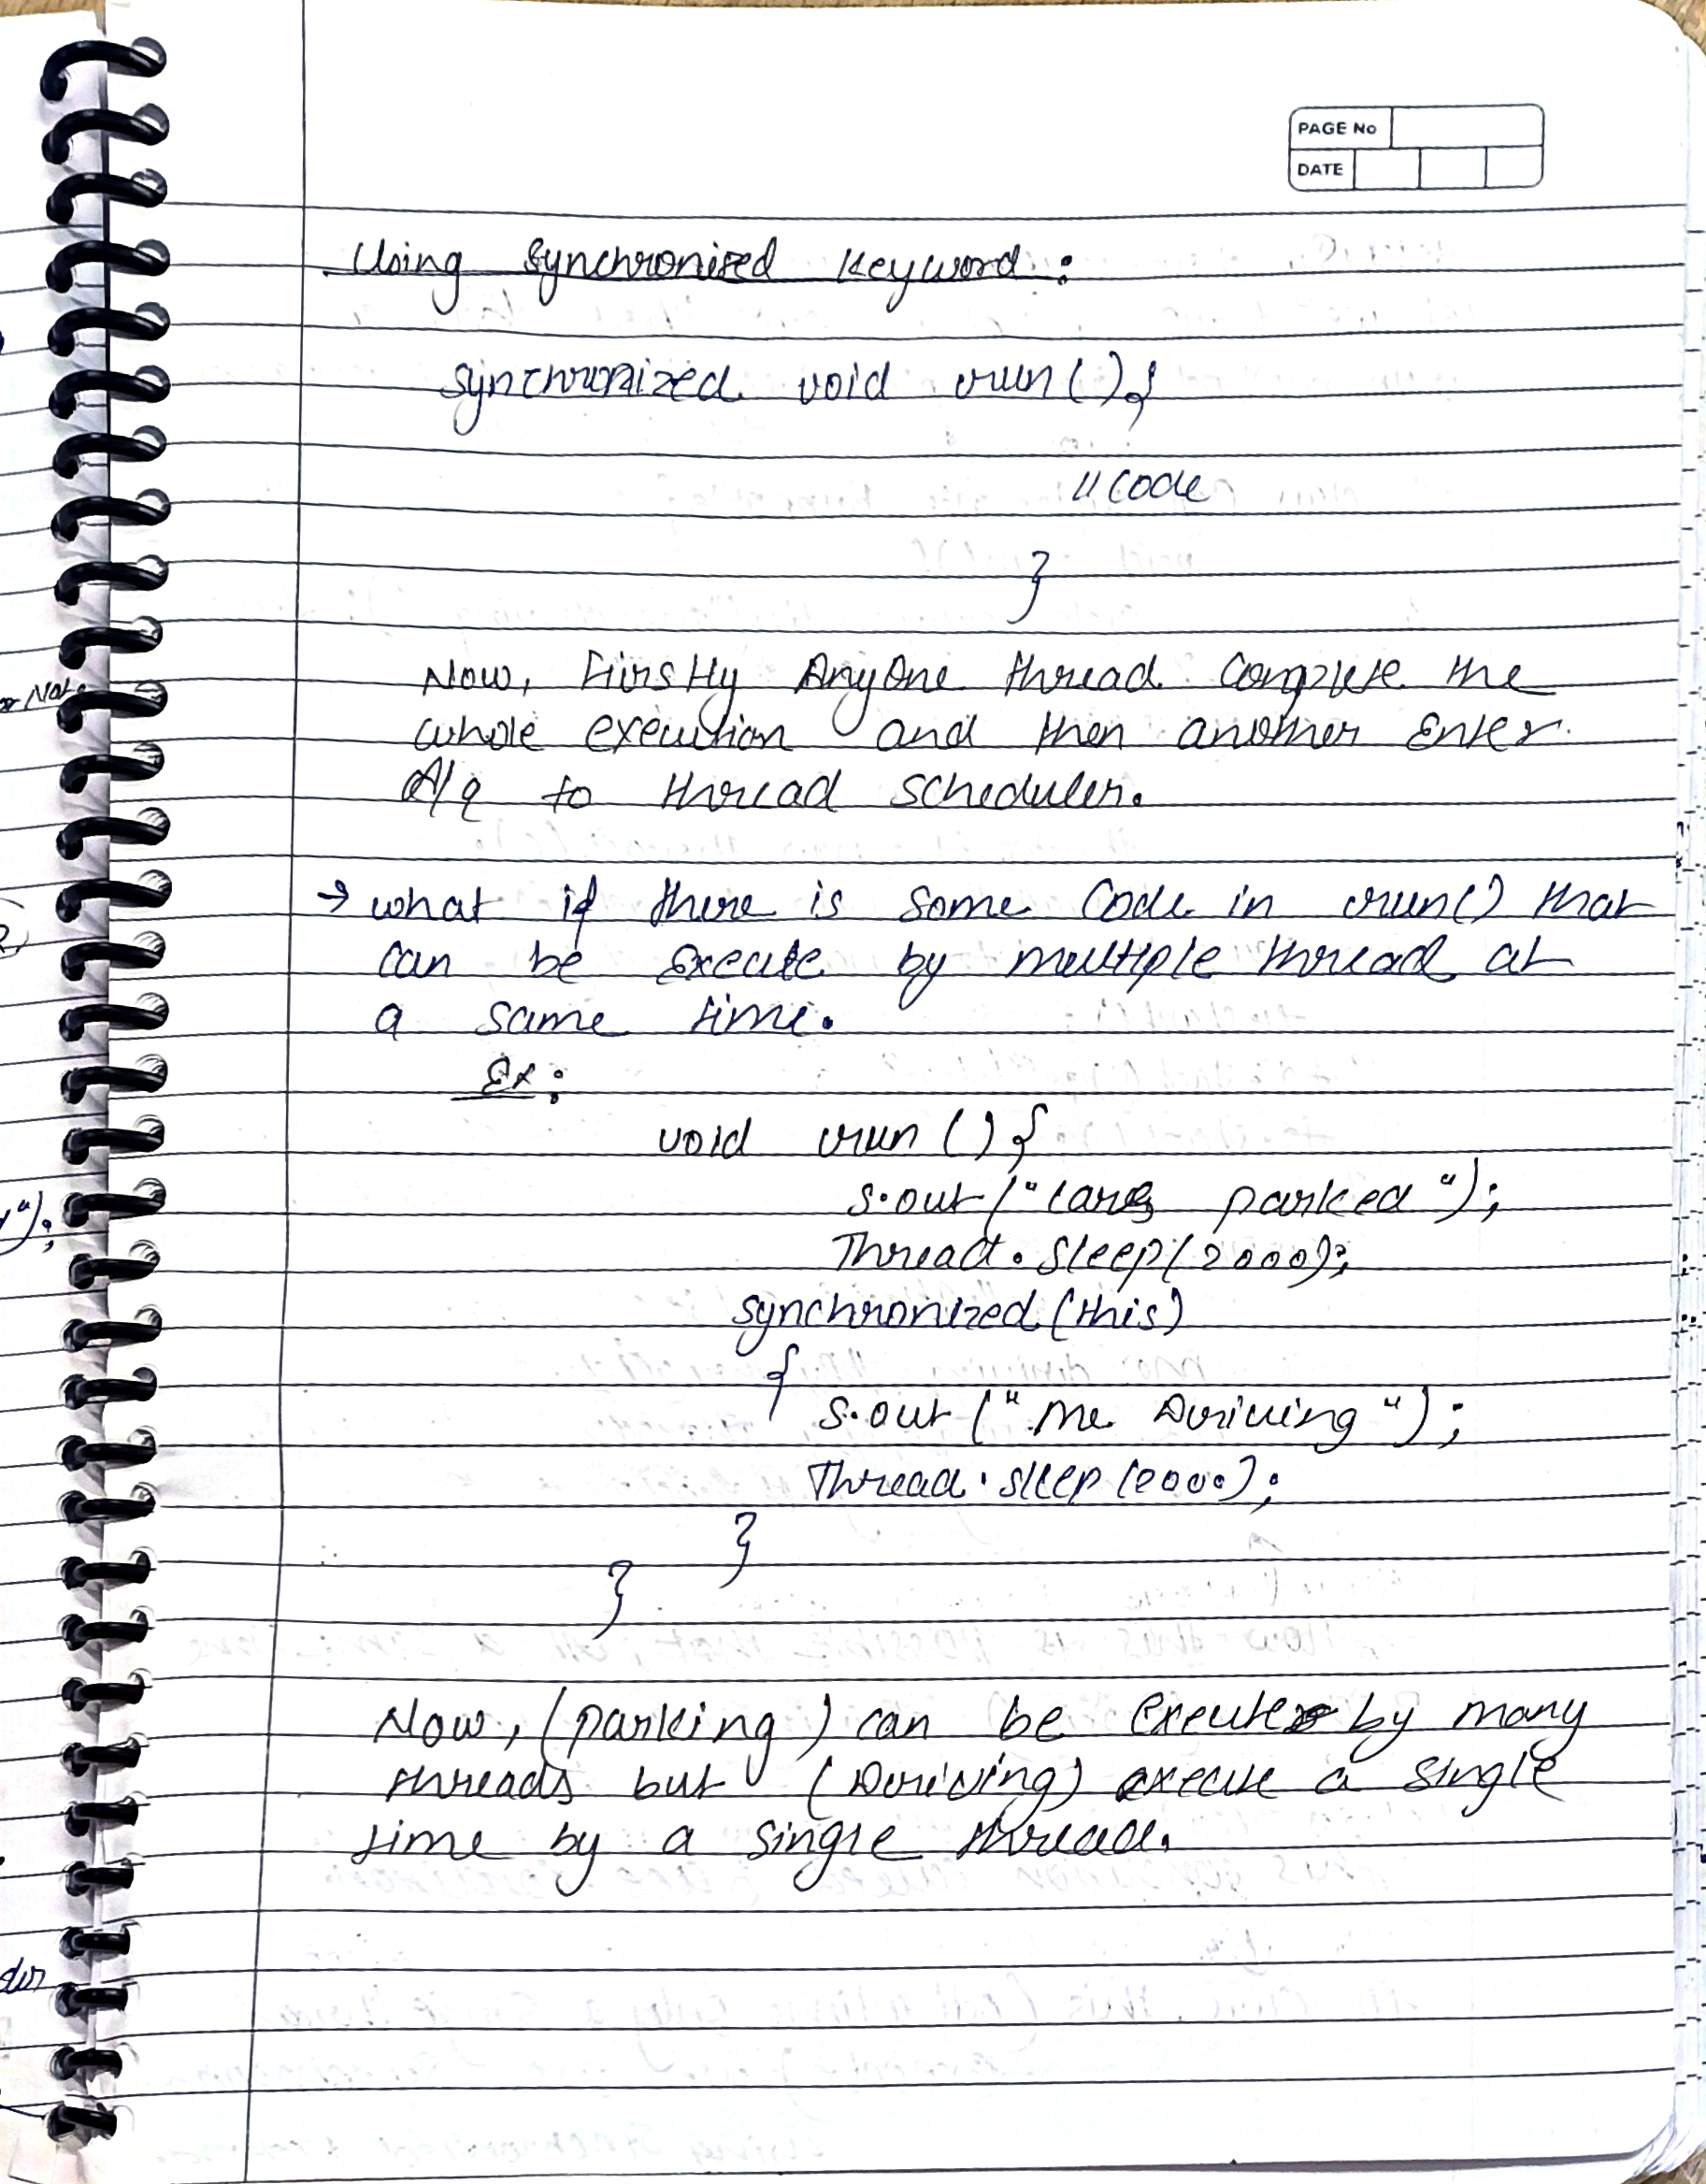 PAGE No
DATE
Using Synchronized Keyword :
synchronized void run() {
// Code
}
Now, Firstly AnyOne thread Complete the
whole execution and then another Enter
A/q to thread scheduler.
→ what if there is some Code in run() that
can be Execute by multiple thread at
a same time.
Ex:
void run () {
S.out ("Cars parked");
Thread.sleep(2000);
synchronized (this)
{ S.out ("Me Driving");
Thread.sleep (2000);
}
}
Now, (parking) can be execute by many
threads but (Driving) execute a single
time by a single thread.